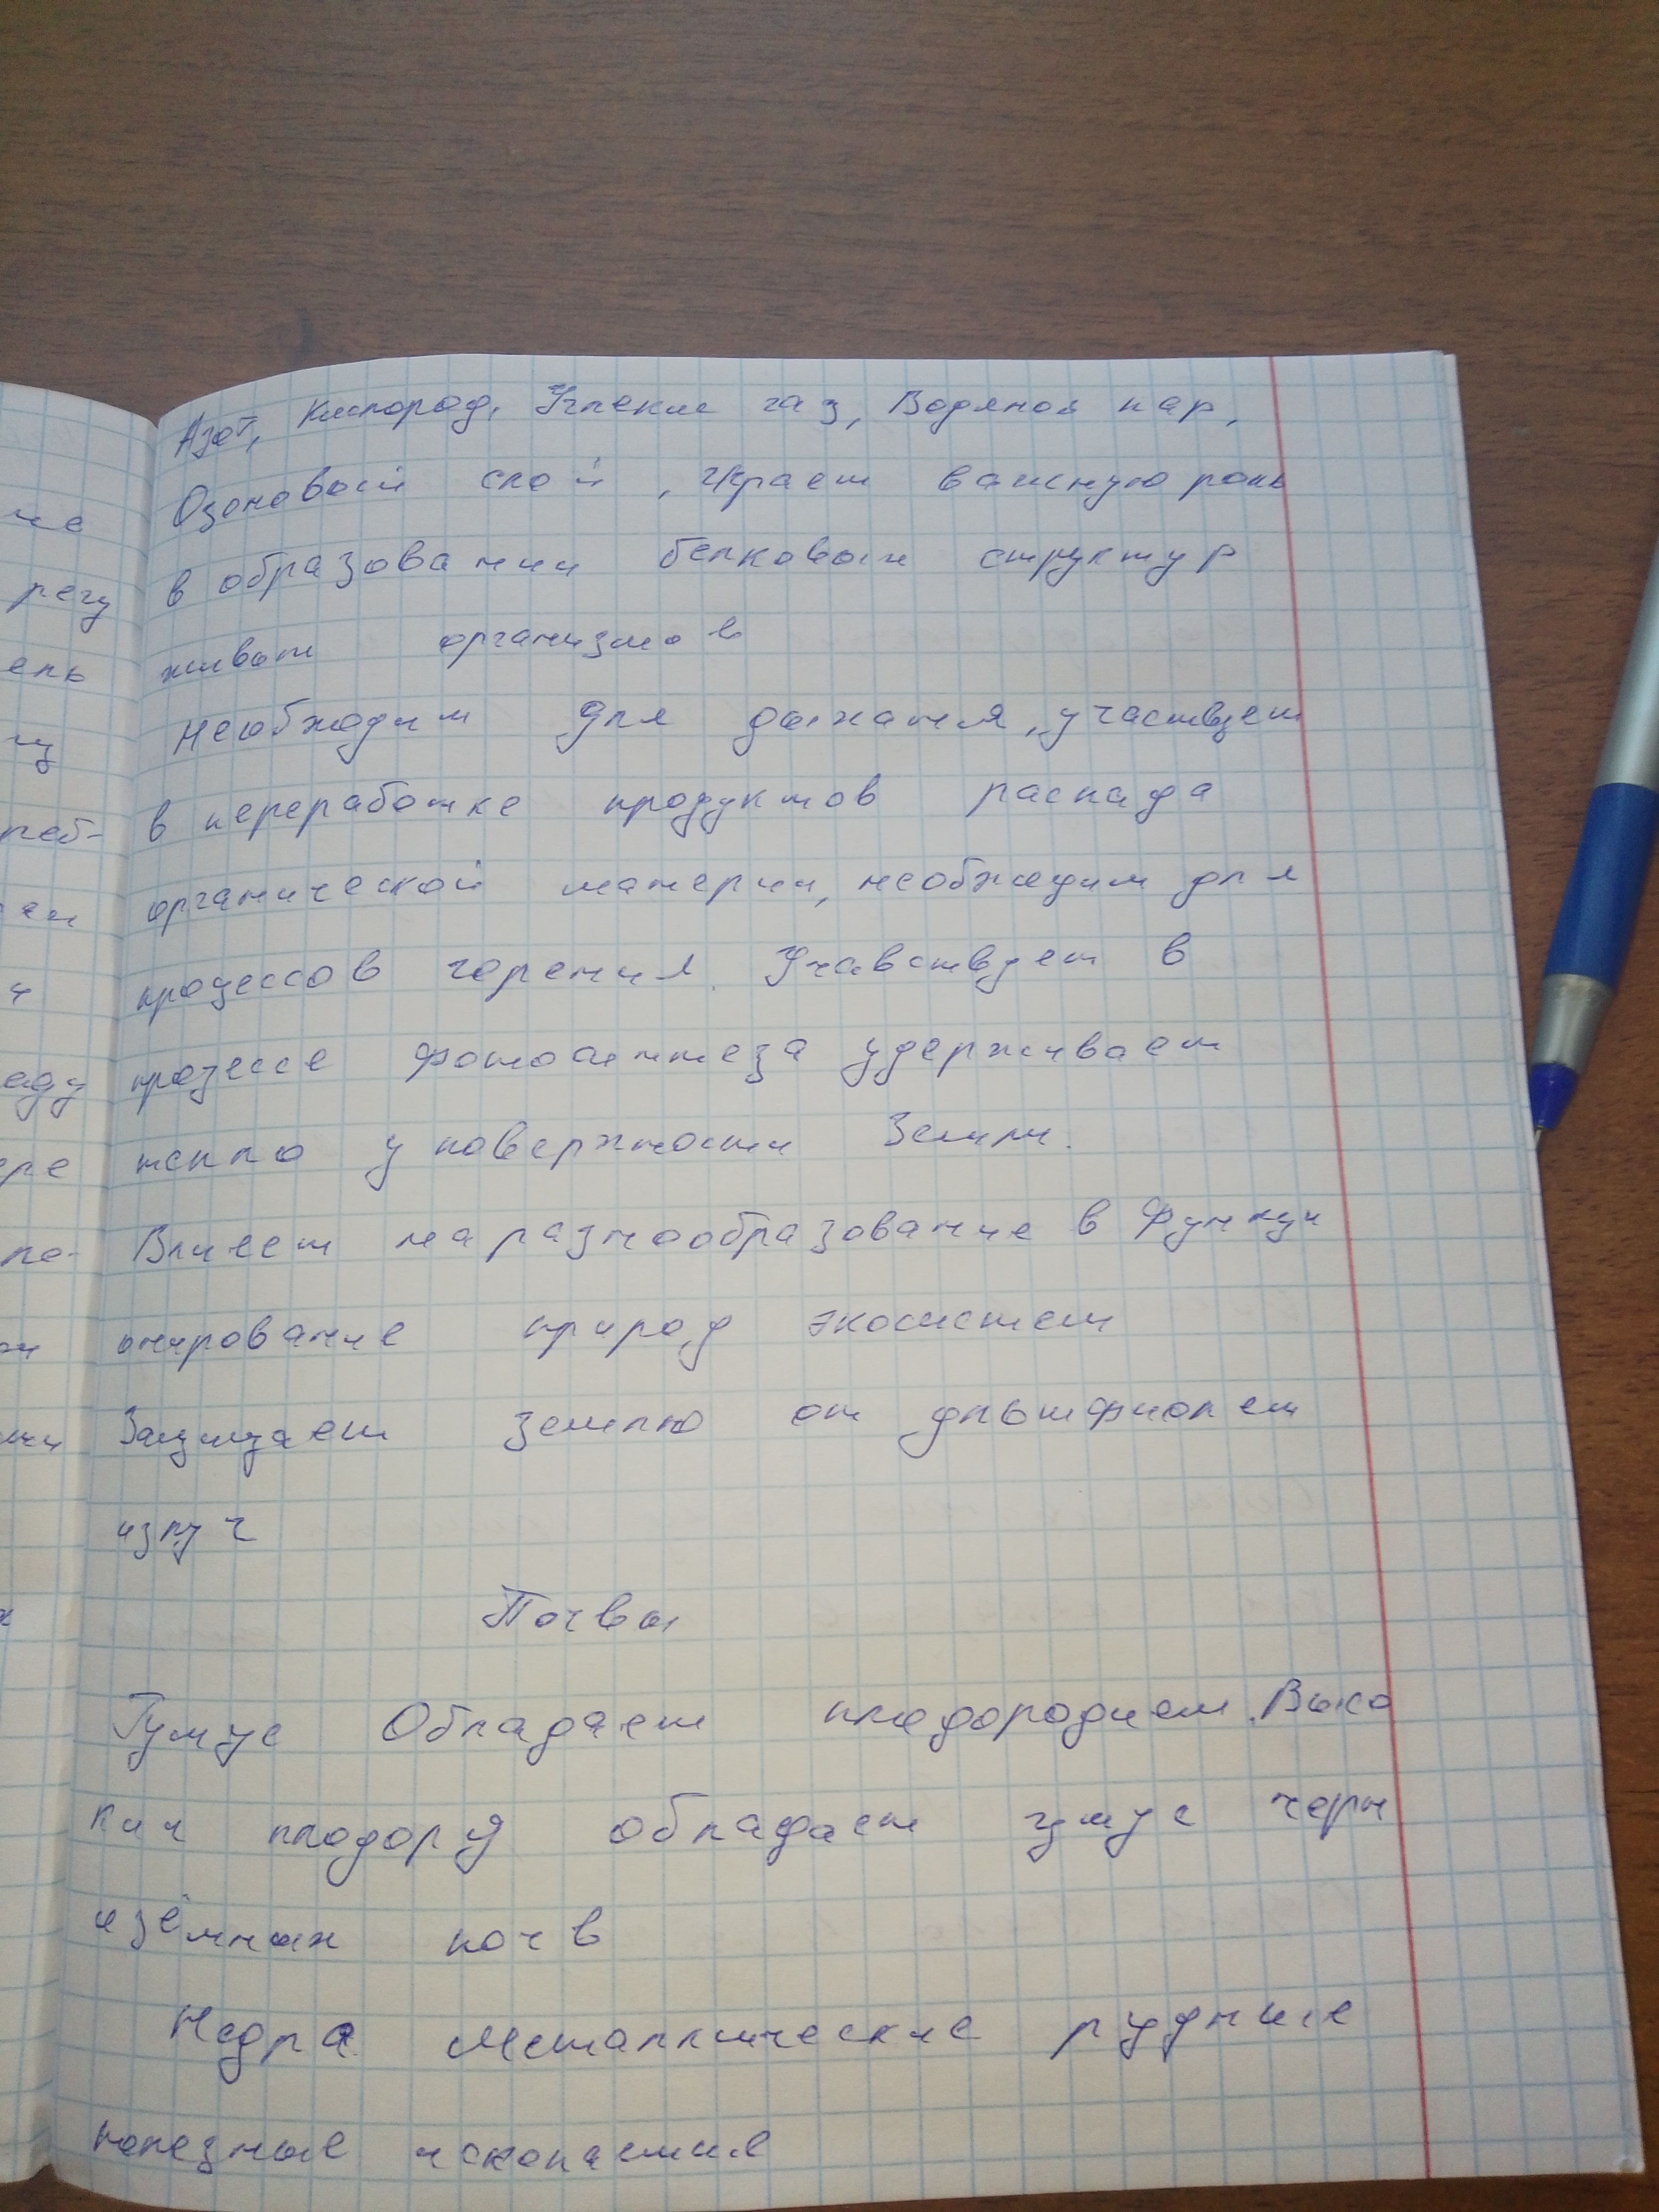 Азот, Кислород, Углекис газ, Водяной пар,
Озоновый слой, Играет важную роль
в образовании белковых структур
живых организмов
необходим для дыхания, участвует
в переработке продуктов распада
органической материи, необходим для
процессов горения. Учавствует в
процессе фотосинтеза удерживает
тепло у поверхности Земли.
Влияет на разнообразование в функци
онирование природ экосистем
Защищает землю от ультрфиолет
излуч
Почвы
Гумус Обладает плодородием. Высо
ким плодор обладает гумус черн
озёмных почв
Недра Металлические рудные
полезные ископаемые
не
регу
ель
реб-
аду
ере